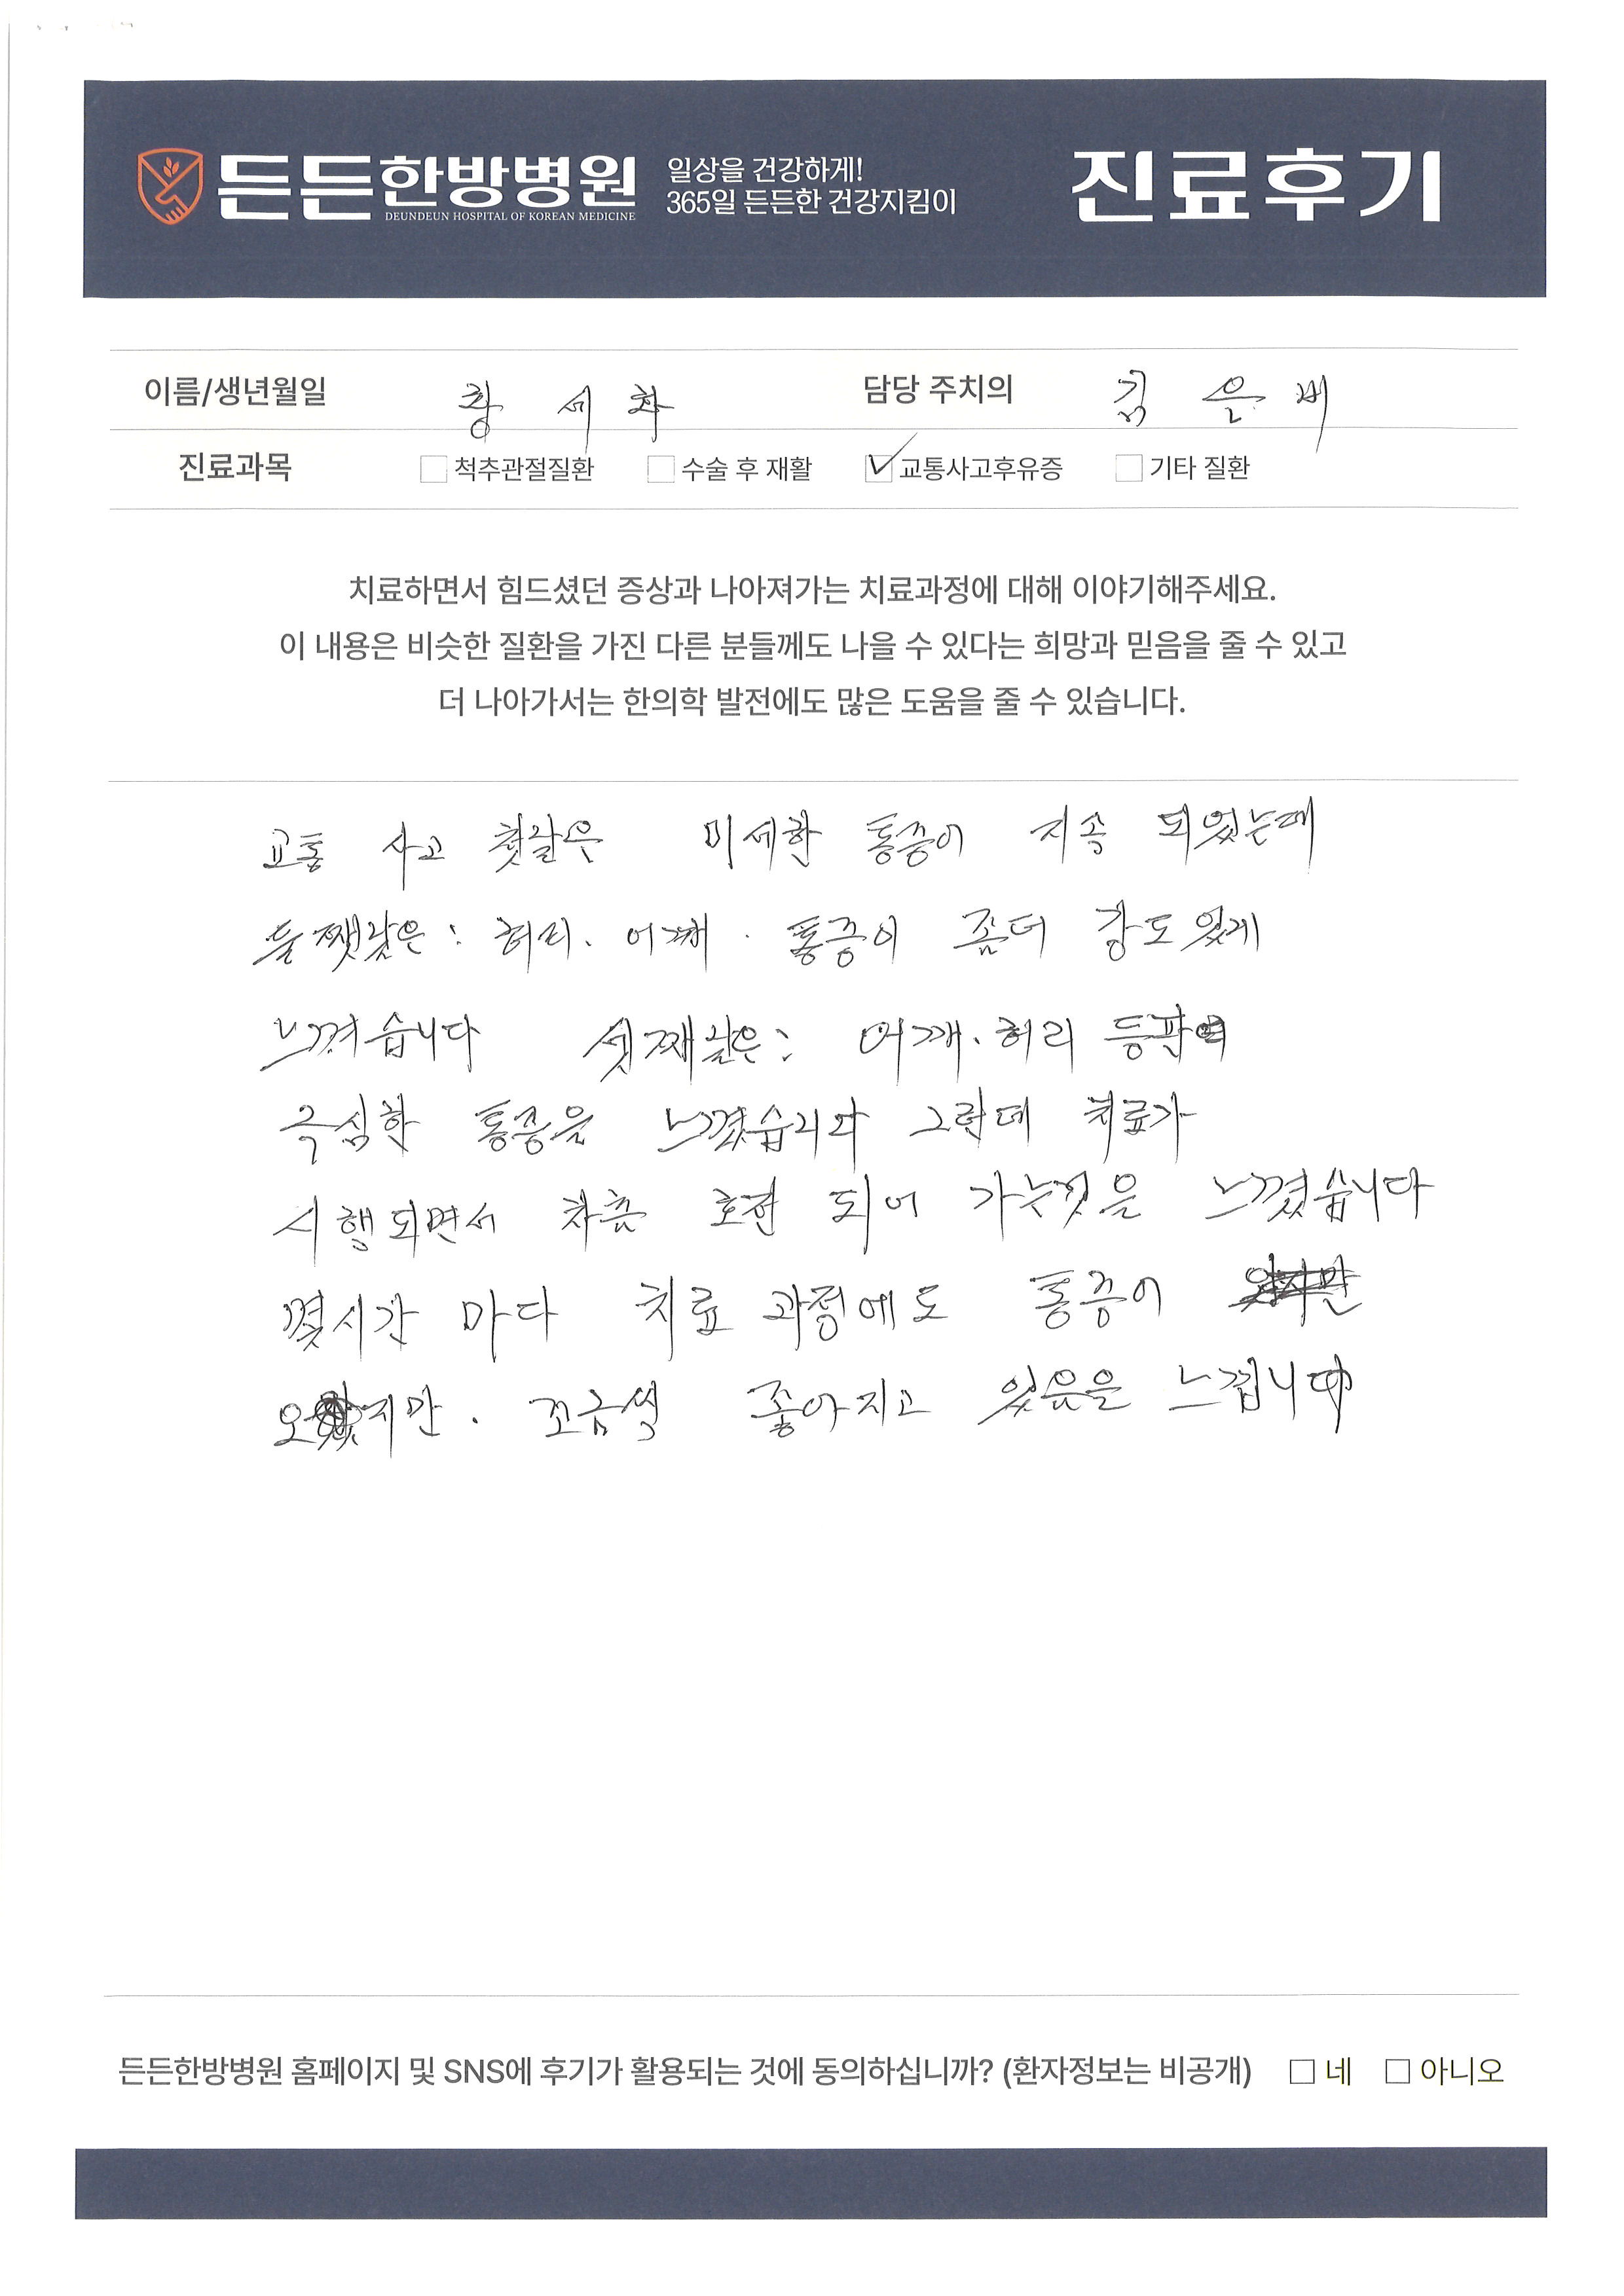 든든한방병원
DEUNDEUN HOSPITAL OF KOREAN MEDICINE
일상을 건강하게!
365일 든든한 건강지킴이
진료후기
이름/생년월일 황세차 담당 주치의 김은비
진료과목 척추관절질환 수술 후 재활 교통사고후유증 기타 질환
치료하면서 힘드셨던 증상과 나아져가는 치료과정에 대해 이야기해주세요.
이 내용은 비슷한 질환을 가진 다른 분들께도 나을 수 있다는 희망과 믿음을 줄 수 있고
더 나아가서는 한의학 발전에도 많은 도움을 줄 수 있습니다.
교통 사고 첫날은 미세한 통증이 지속 되었는데
둘쨋날은: 허리. 어깨. 통증이 좀더 강도있게
느껴습니다 셋째날은: 어깨.허리 등판에
극심한 통증을 느꼈습니다 그런데 치료가
시행되면서 차츰 호전 되어 가는것을 느꼈습니다
몇시간 마다 치료 과정에도 통증이
지만. 조금씩 좋아지고 있음을 느낍니다
든든한방병원 홈페이지 및 SNS에 후기가 활용되는 것에 동의하십니까? (환자정보는 비공개) 네 아니오